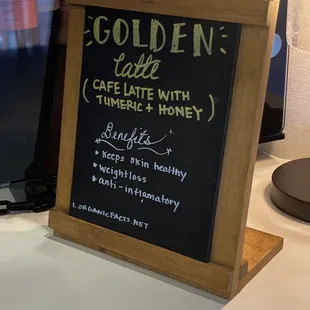 GOLDEN
latte
(CAFE LATTE WITH
TUMERIC + HONEY)
Benefits
* Keeps skin healthy
* weightloss
* anti-inflamatory
1. ORGANICFACTS.NET